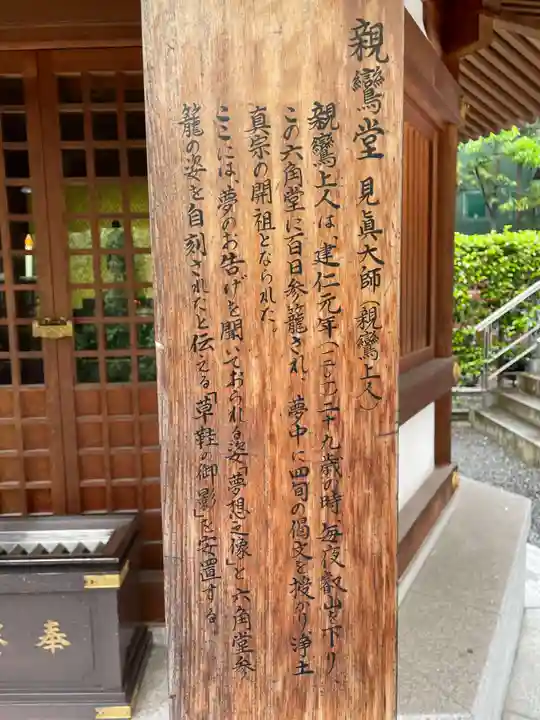 親鸞堂 見眞大師（親鸞上人）
親鸞上人は、建仁元年（一二〇一）二十九歳の時、毎夜叡山を下り
この六角堂に百日参籠され、夢中に四句の偈文を授かり浄土
真宗の開祖となられた。
ここには、夢のお告げを聞いておられる姿「夢想之像」と六角堂参
籠の姿を自刻されたと伝える「草鞋の御影」を安置する。
奉